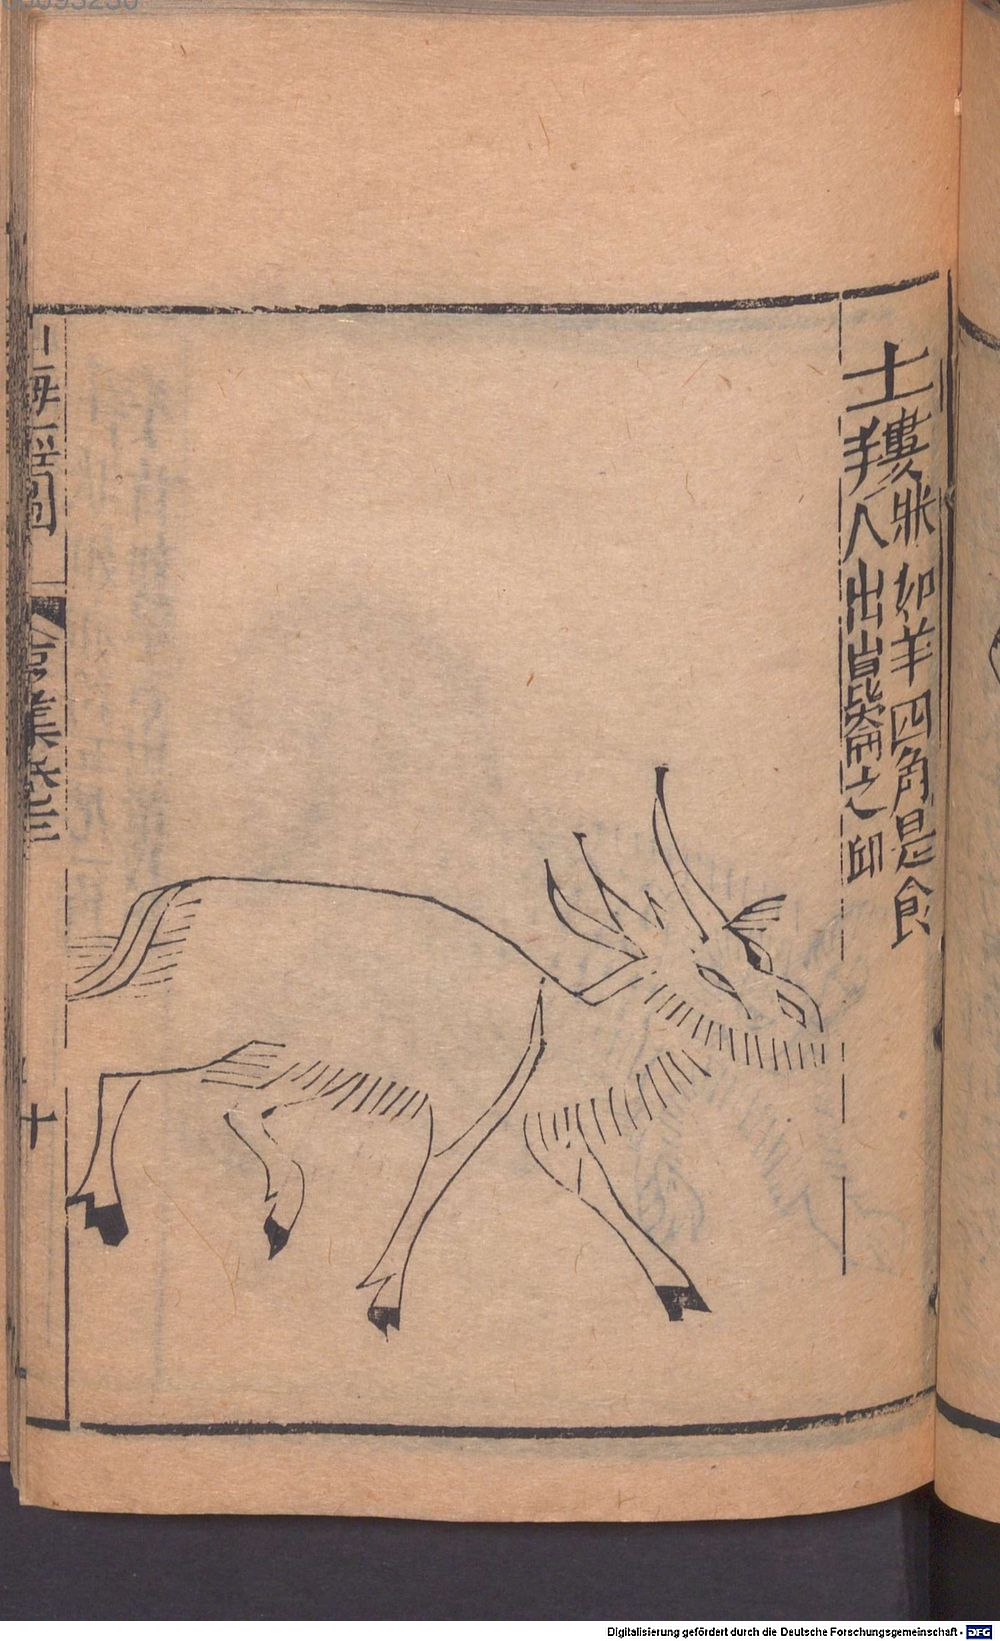 土㺏狀如羊四角是食
人出崑崙之邱
十
Digitalisierung gefördert durch die Deutsche Forschungsgemeinschaft - DFG